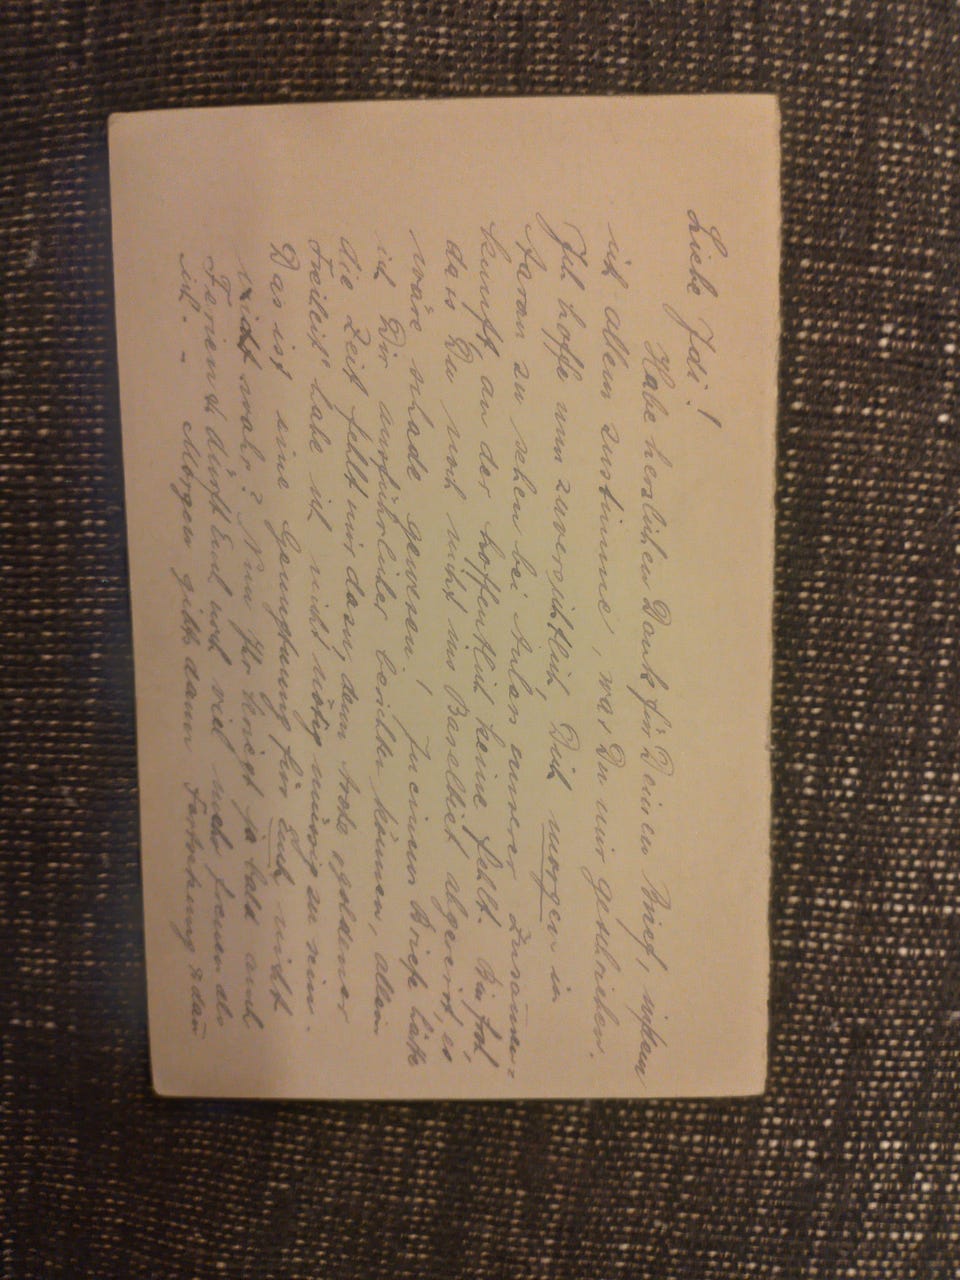 Liebe Idi!
Habe herzlichen Dank für Deinen Brief, indem
ich allem zustimme, was Du mir geschrieben.
Ich hoffe nun zuversichtlich, Dich morgen in
Aarau zu sehen bei Anlass unserer Zusammen-
kunft, an der hoffentlich keine fehlt. Bin froh,
dass Du noch nicht ins Baselbiet abgereist, es
wäre schade gewesen! In einem Briefe hätte
ich Dir ausführlicher berichten können, allein
die Zeit fehlt mir dazu, denn trotz goldener
Freiheit habe ich nicht nötig neidig zu sein.
Das ist eine Genugtuung für Euch, nicht
wahr? Nun Ihr kriegt ja bald auch
Ferien & dürft Euch noch viel mehr freuen als
ich. - Morgen gibts dann Fortsetzung &